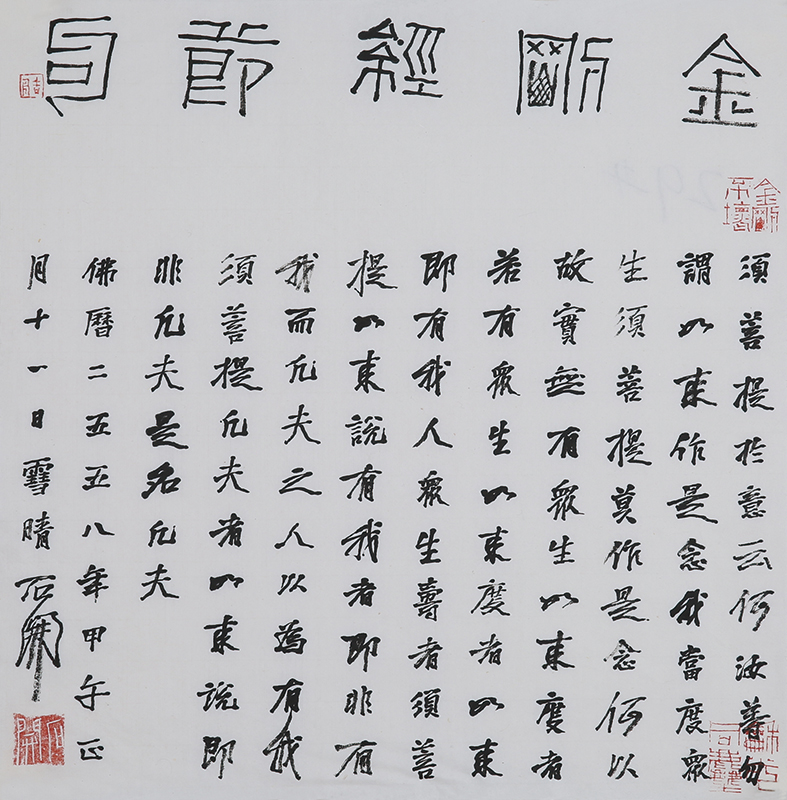 金剛經節句
須菩提於意云何汝等勿
謂如來作是念我當度眾
生須菩提莫作是念何以
故實無有眾生如來度者
若有眾生如來度者如來
即有我人眾生壽者須菩
提如來說有我者即非有
我而凡夫之人以為有我
須菩提凡夫者如來說即
非凡夫是名凡夫
佛曆二五五八年甲午正
月十一日雪晴石開
金剛不壞
石開